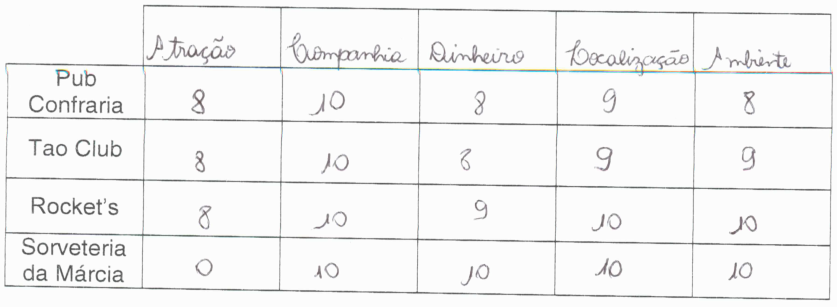 Atração Companhia Dinheiro Localização Ambiente
Pub Confraria 8 10 8 9 8
Tao Club 8 10 8 9 9
Rocket's 8 10 9 10 10
Sorveteria da Márcia 0 10 10 10 10